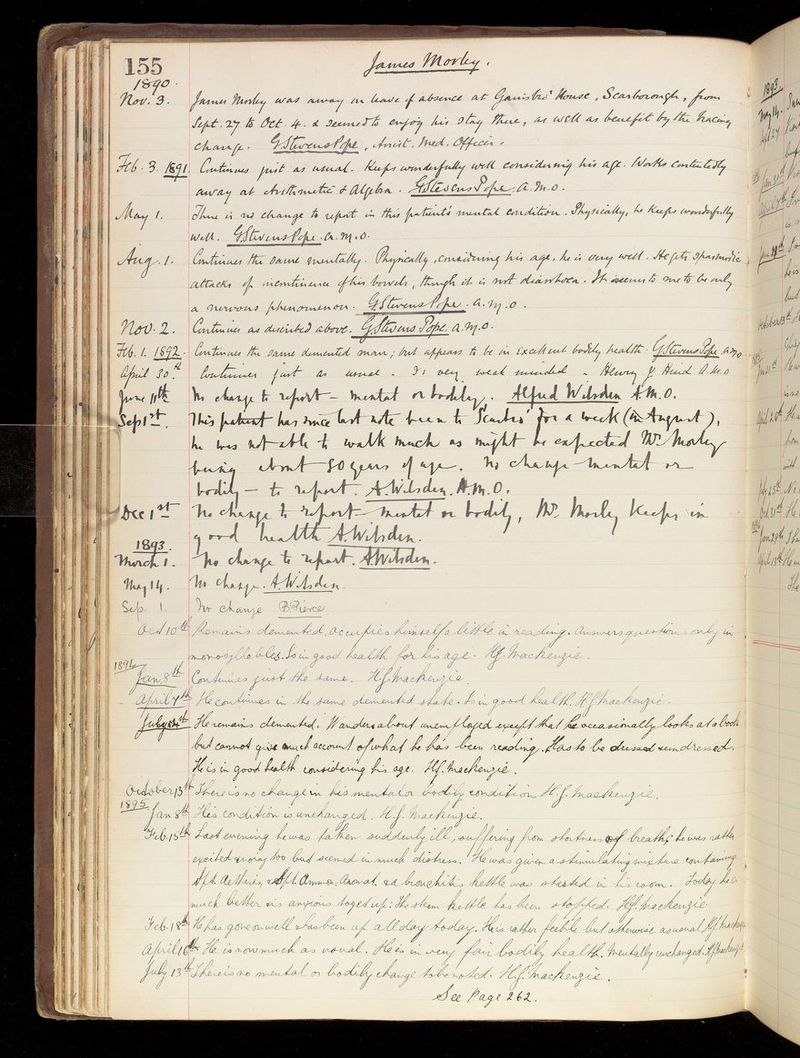 155
James Morley.
1890.
Nov. 3. James Morley was away on leave of absence at Gainsbro' House, Scarborough, from
Sept. 27 to Oct. 4. & seemed to enjoy his stay there, as well as benefit by the bracing
change. G Stevens Pope, Assist. Med. Officer.
Feb. 3. 1891. Continues just as usual. Keeps wonderfully well considering his age. Works contentedly
away at Arithmetic & Algebra. G Stevens Pope. A.M.O.
May 1. There is no change to report in this patient's mental condition. Physically, he keeps wonderfully
well. G Stevens Pope. A.M.O.
Aug. 1. Continues the same mentally. Physically, considering his age, he is very well. He gets spasmodic
attacks of incontinence of his bowels, though it is not diarrhoea. It seems to me to be only
a nervous phenomenon. G Stevens Pope. A.M.O.
Nov. 2. Continues as described above. G Stevens Pope. A.M.O.
Feb. 1. 1892. Continues the same demented man, but appears to be in excellent bodily health. G Stevens Pope A.M.O
April 30th. Continues just as usual. Is very weak minded - Henry Hind A.M.O
June 11th No change to report - mental or bodily. Alfred Wilsden A.M.O.
Sep 1st. This patient has since last note been to Scarbro' for a week (in August),
he was not able to walk much as might be expected Mr. Morley
being about 80 years of age. No change mental or
bodily - to report. A. Wilsden. A.M.O.
Dec 1st No change to report mental or bodily, Mr. Morley keeps in
good health A. Wilsden.
1893.
March 1. No change to report. A Wilsden.
May 14. No change. A. Wilsden.
Sep. 1. No change B Pierce
Oct 10th Remains demented, occupies himself a little in reading. Answers questions only in
monosyllables. Is in good health for his age. H.J. Mackenzie.
1894
Jan 8th Continues just the same. H.J. Mackenzie
April 7th He continues in the same demented state. Is in good health. H.J. Mackenzie.
July He remains demented. Wanders about unemployed except that he occasionally looks at a book
but cannot give much account of what he has been reading. Has to be dressed & undressed.
He is in good health considering his age. H.J. Mackenzie.
October 13th There is no change in his mental or bodily condition H.J. Mackenzie.
1895
Jan 8th His condition is unchanged. H.J. Mackenzie.
Feb. 15th Last evening he was taken suddenly ill, suffering from shortness of breath; he was rather
excited & noisy too but seemed in much distress. He was given a stimulating mixture containing
Spt. Aetheris, & Spt. Ammon. Aromat. & a bronchitis kettle was started in his room. Today he is
much better & is anxious to get up: the steam kettle has been stopped. H.J. Mackenzie
Feb. 18th He has gone on well & has been up all day today. He is rather feeble but otherwise as usual H.J. Mackenzie
April He is now much as usual. He is in very fair bodily health. Mentally unchanged. H.J. Mackenzie
July 13th There is no mental or bodily change to be noted. H.J. Mackenzie.
See Page 262.